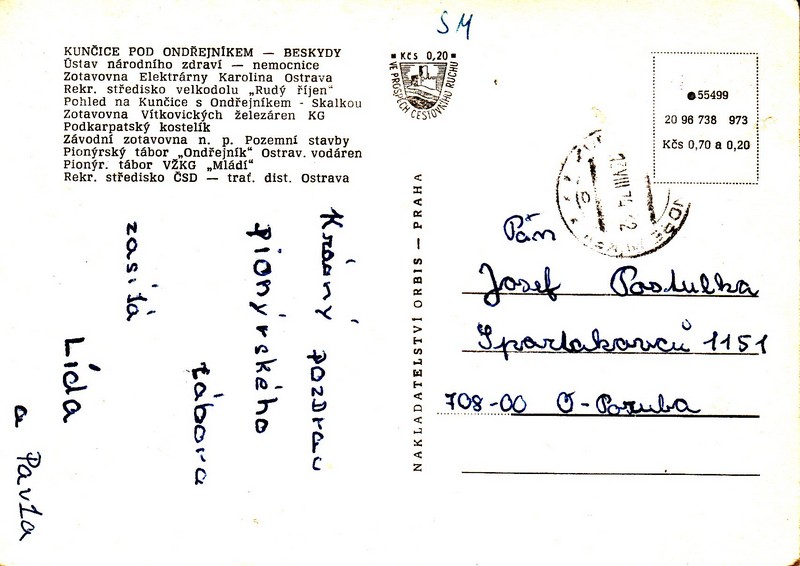 SM
KUNČICE POD ONDŘEJNÍKEM — BESKYDY
Ústav národního zdraví — nemocnice
Zotavovna Elektrárny Karolina Ostrava
Rekr. středisko velkodolu „Rudý říjen"
Pohled na Kunčice s Ondřejníkem - Skalkou
Zotavovna Vítkovických železáren KG
Podkarpatský kostelík
Závodní zotavovna n. p. Pozemní stavby
Pionýrský tábor „Ondřejník" Ostrav. vodáren
Pionýr. tábor VŽKG „Mládí"
Rekr. středisko ČSD — trať. dist. Ostrava
Kčs 0,20
VE PROSPĚCH CESTOVNÍHO RUCHU
55499
20 96 738 973
Kčs 0,70 a 0,20
Krásný pozdrav
pionýrského
tábora
zasílá
Lída
a Pavla
NAKLADATELSTVÍ ORBIS — PRAHA
Pán
Josef Postulka
Spartakovců 1151
708-00 O-Poruba